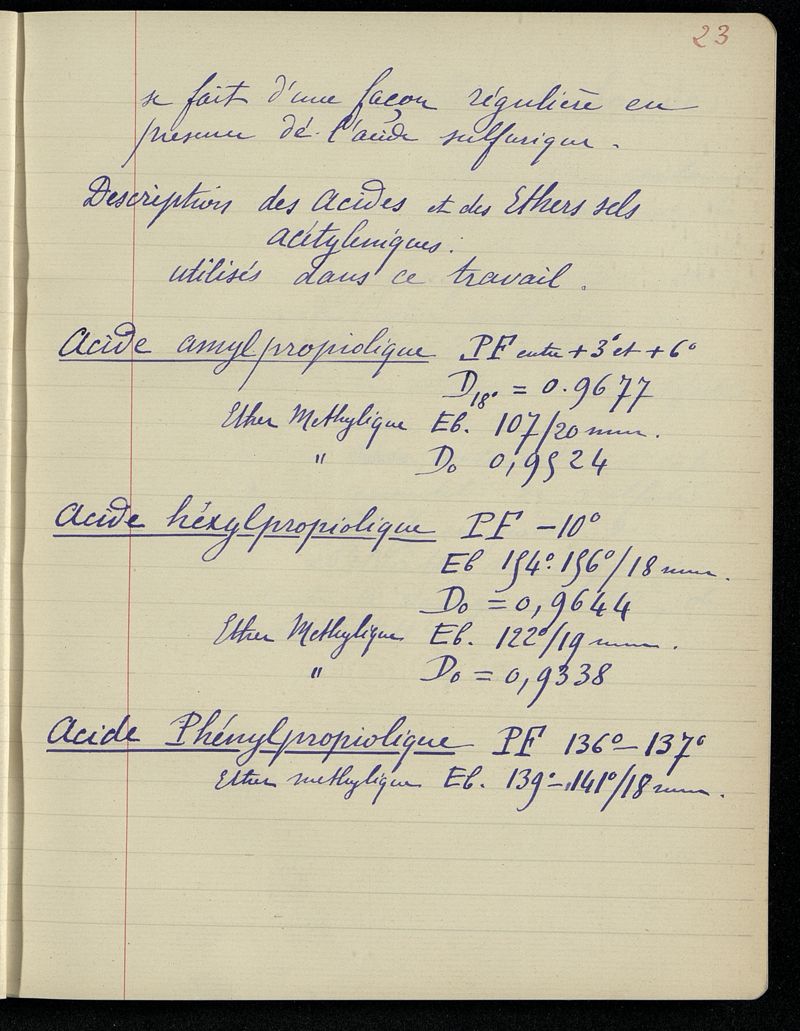 23
se fait d'une façon régulière en
présence de l'acide sulfurique.
Description des acides et des Ethers sels
acétyléniques.
utilisés dans ce travail.
Acide amylpropiolique PF entre +3° et +6°
D18° = 0.9677
Ether Méthylique Eb. 107/20 mm.
" Do 0,9524
Acide héxylpropiolique PF -10°
Eb 154°-156°/18 mm.
Do = 0,9644
Ether Méthylique Eb. 122°/19 mm.
" Do = 0,9338
Acide Phénylpropiolique PF 136°-137°
Ether méthylique Eb. 139°-141°/18 mm.